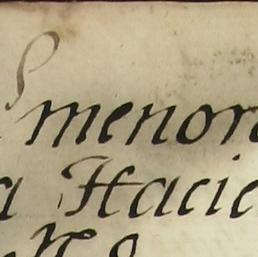 menor
a Hacie